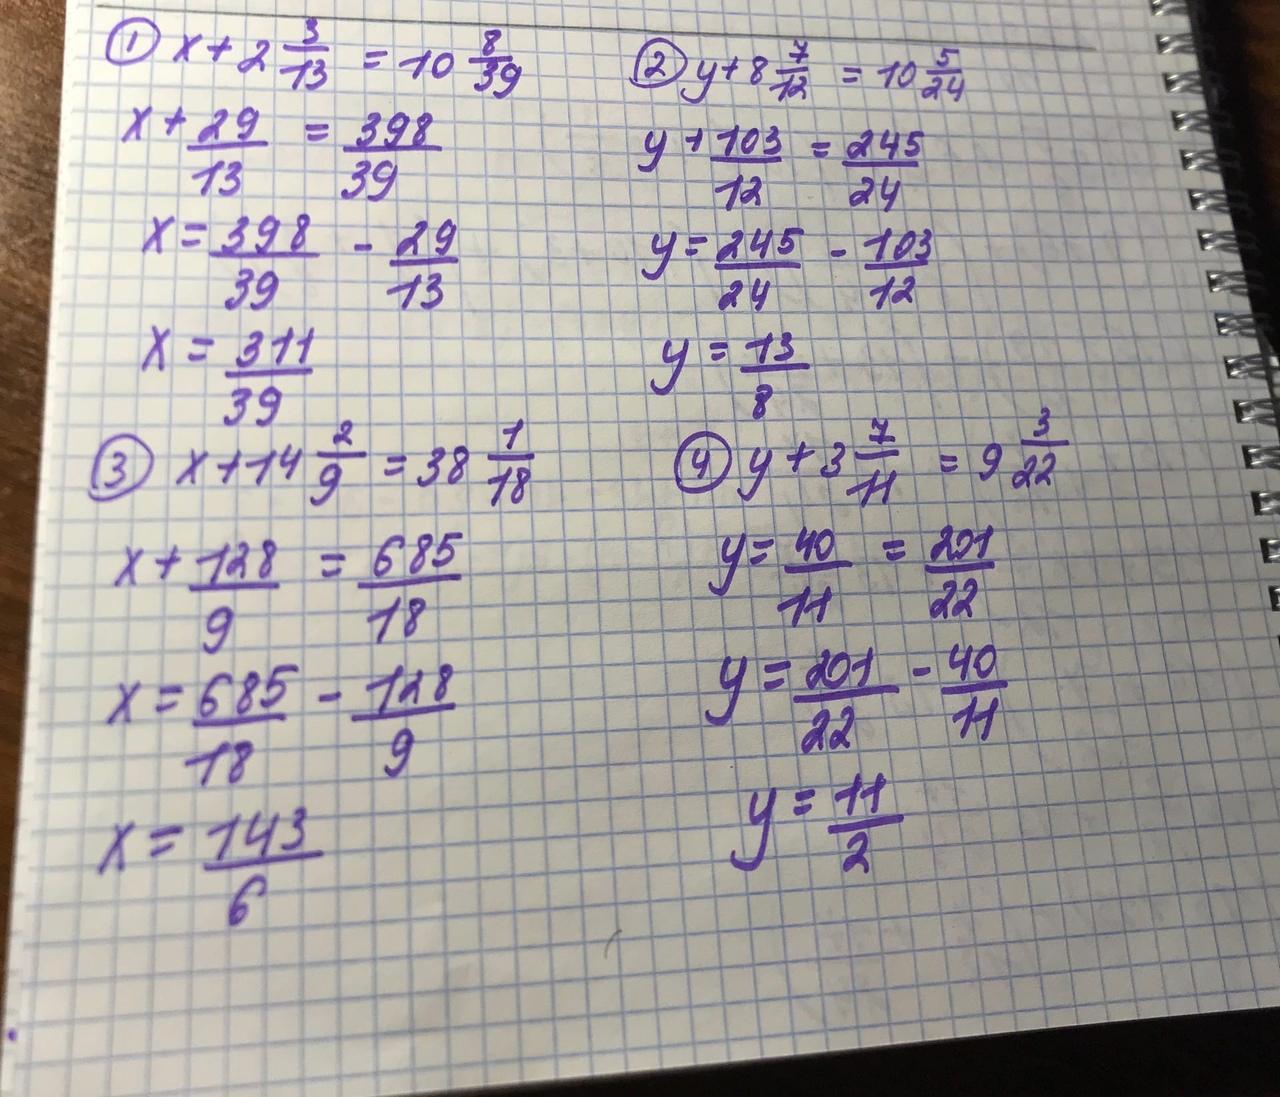 ① x + 2 3/13 = 10 8/39
x + 29/13 = 398/39
x = 398/39 - 29/13
x = 311/39
② y + 8 7/12 = 10 5/24
y + 103/12 = 245/24
y = 245/24 - 103/12
y = 13/8
③ x + 14 2/9 = 38 1/18
x + 128/9 = 685/18
x = 685/18 - 128/9
x = 143/6
④ y + 3 7/11 = 9 3/22
y = 40/11 = 201/22
y = 201/22 - 40/11
y = 11/2